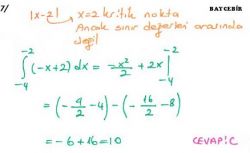 7/
|x-2| x=2 kritik nokta
BAYCEBİR
Ancak sınır değerleri arasında
değil
∫_{-4}^{-2} (-x+2) dx = -x²/2 + 2x |_{-4}^{-2}
= (-4/2 - 4) - (-16/2 - 8)
= -6 + 16 = 10
CEVAP: C